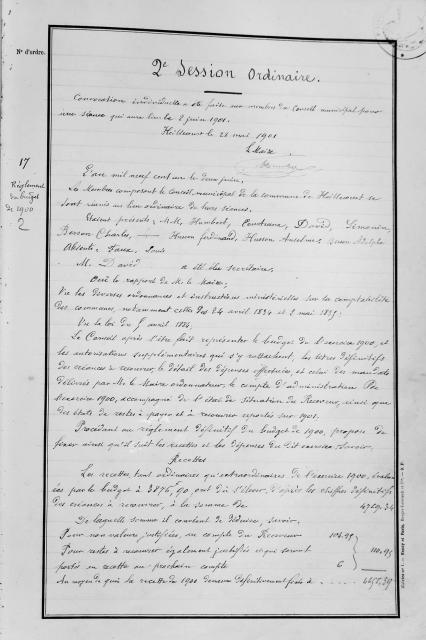 N° d'ordre.
2e Session Ordinaire.
Convocation individuelle a été faite aux membres du Conseil municipal pour
une séance qui aura lieu le 2 juin 1901.
Heillecourt le 28 mai 1901
Le Maire
17
Règlement
du budget
de 1900
2
L'an mil neuf cent un le deux juin,
Les Membres composant le conseil municipal de la commune de Heillecourt se
sont réunis au lieu ordinaire de leurs séances.
Etaient présents, M.M. Humbert, David,
Charles, Husson Ferdinand, Husson Anselme, Adolphe
Absents, Louis
M. David a été élu secrétaire,
Ouï le rapport de M. le Maire;
Vu les diverses ordonnances et instructions ministérielles sur la comptabilité
des communes, notamment celles des 24 avril 1834 et 2 mai 1835;
Vu la loi du 5 avril 1884;
Le Conseil après s'être fait représenter le budget de l'exercice 1900, et
les autorisations supplémentaires qui s'y rattachent, les titres définitifs
des créances à recouvrer, le détail des dépenses effectuées et celui des mandats
délivrés par M. le Maire ordonnateur, le compte d'administration
l'exercice 1900, accompagné de l'état de situation du Receveur, ainsi que
des états de restes à payer et à recouvrer reportés sur 1901.
Procédant au règlement définitif du budget de 1900, propose de
fixer ainsi qu'il suit les recettes et les dépenses du dit exercice, savoir.
Recettes
Les recettes, tant ordinaires qu'extraordinaires de l'exercice 1900, évalu-
ées par le budget à 90, ont dû s'élever, d'après les chiffres définitifs
des créances à recouvrer, à la somme de
De laquelle somme il convient de déduire, savoir,
Pour non valeurs, justifiées, au compte du Receveur
Pour restes à recouvrer également justifiés et qui seront
portés en recette au prochain compte 6
Au moyen de quoi la recette de 1900 demeure définitivement fixée à